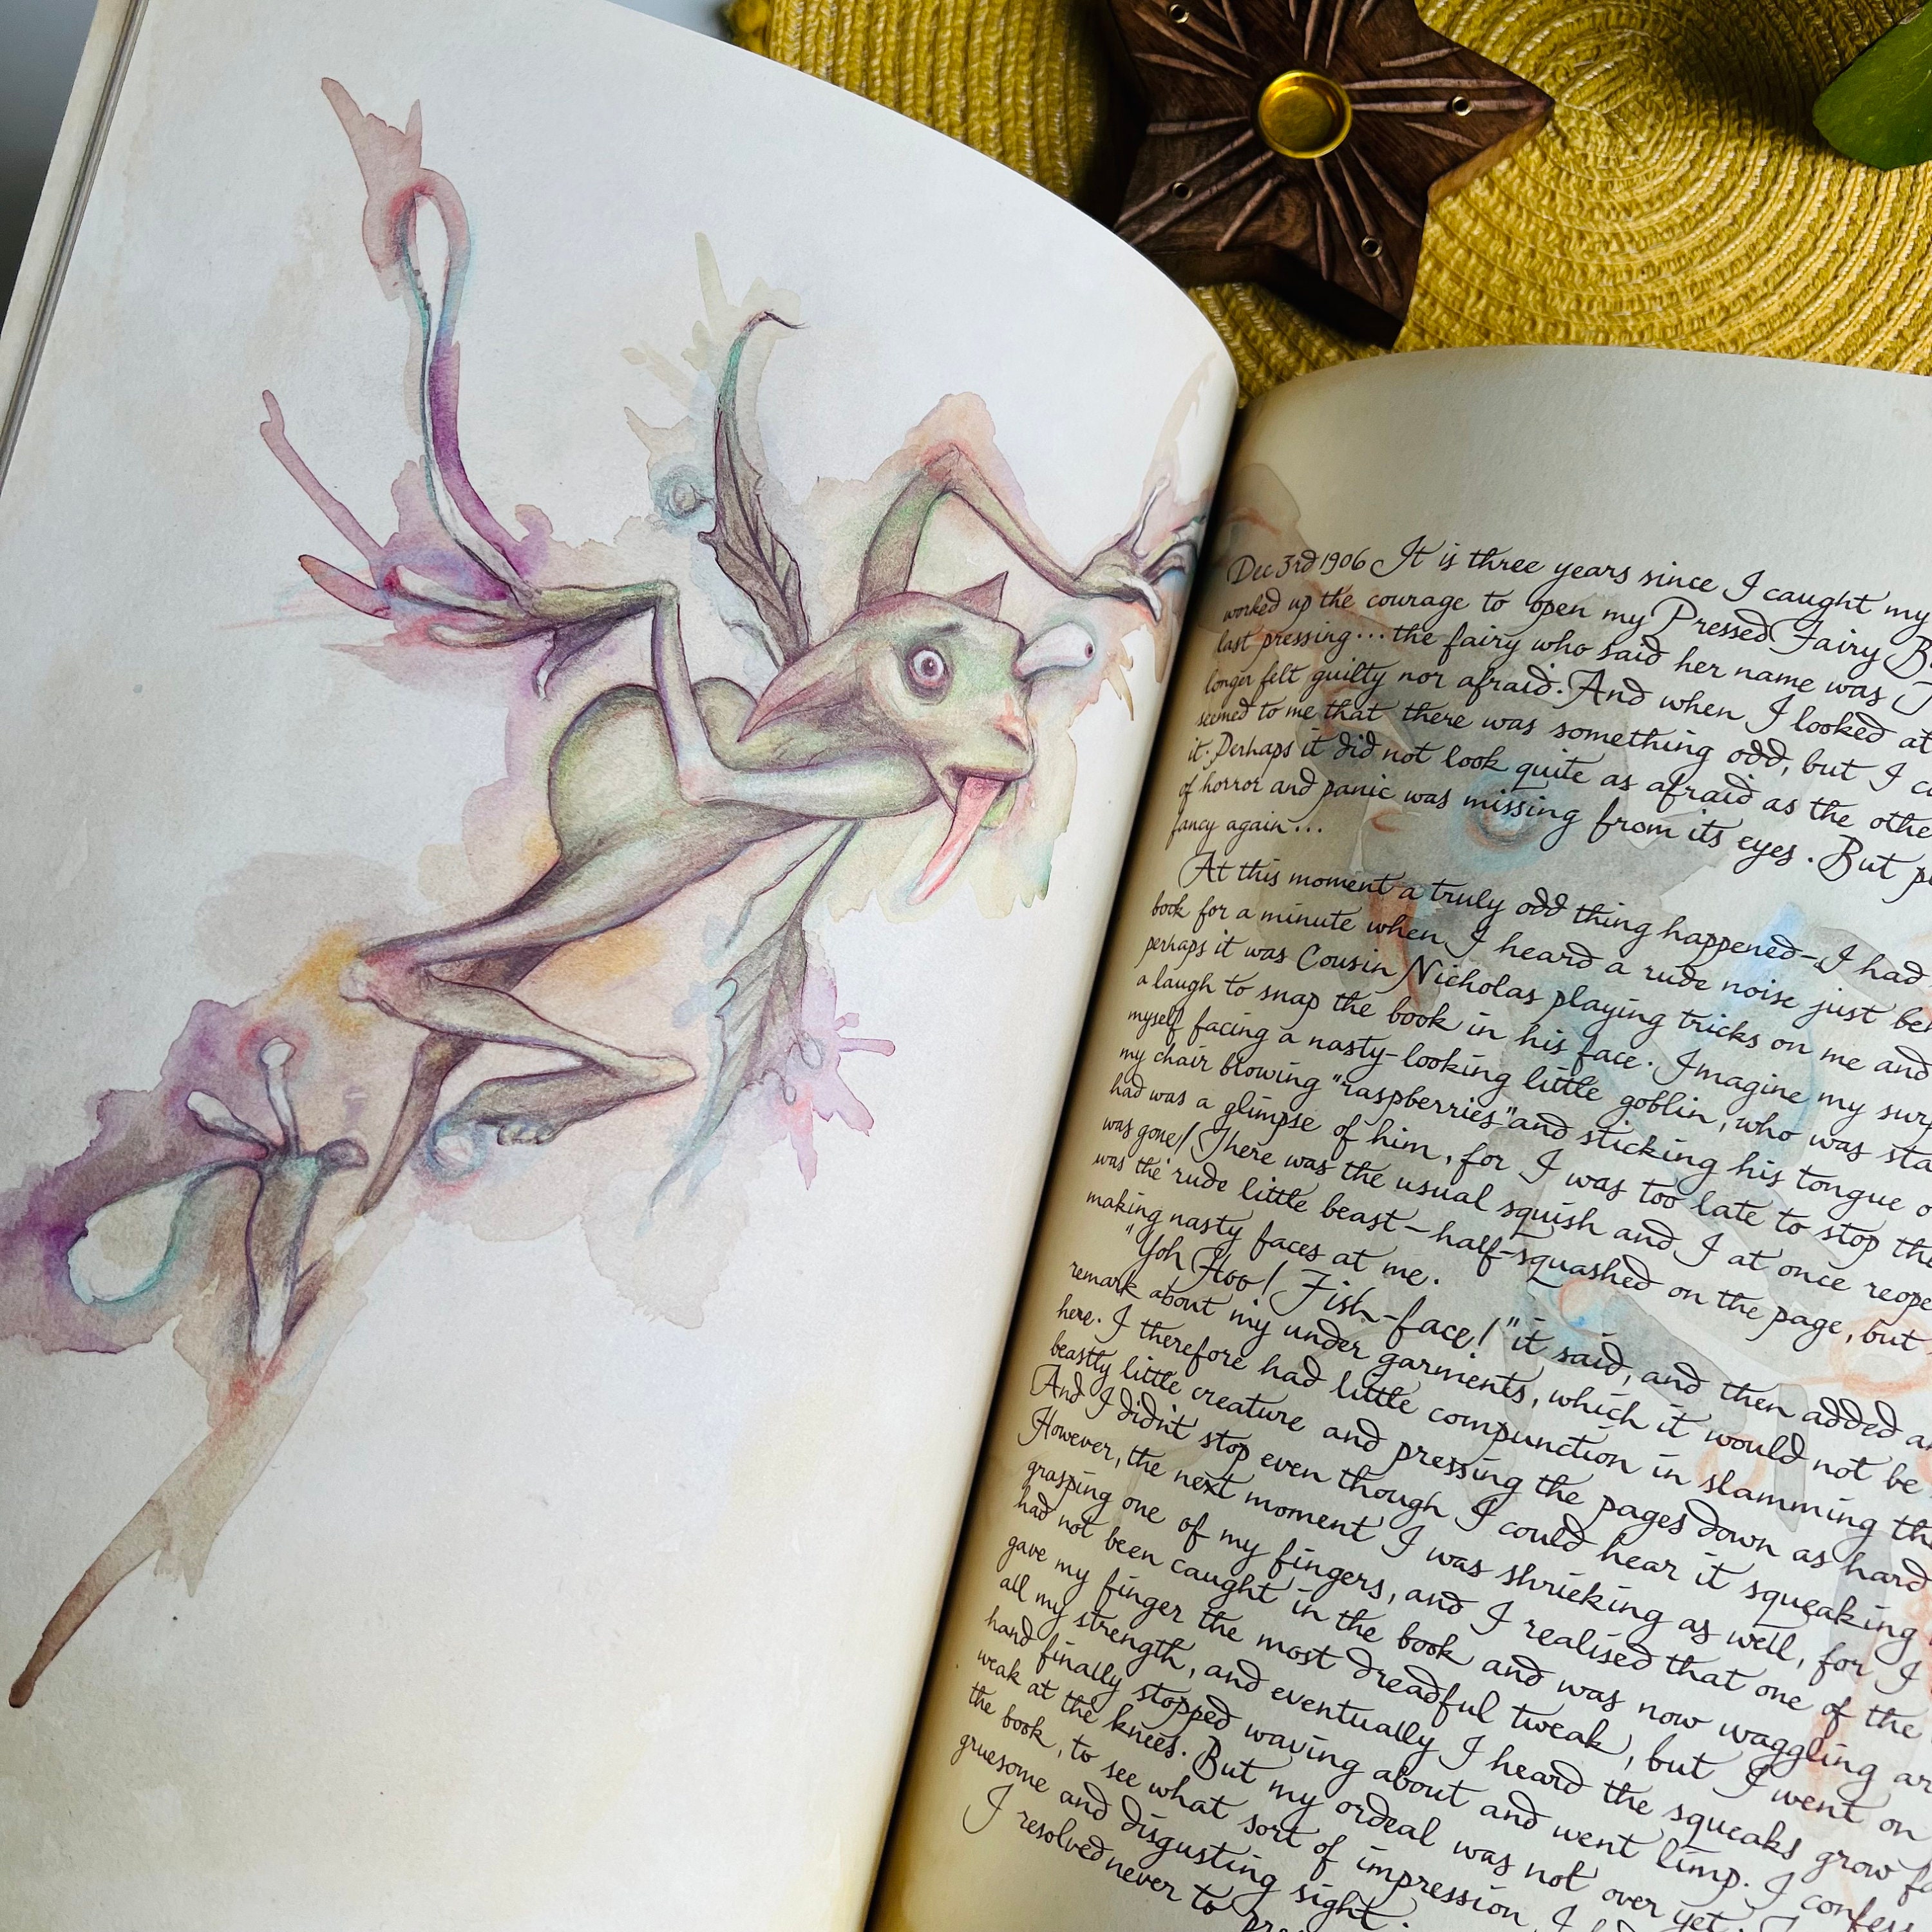 Dec 3rd 1906 It is three years since I caught my
worked up the courage to open my Pressed Fairy
last pressing... the fairy who said her name was
longer felt guilty nor afraid. And when I looked at
seemed to me that there was something odd, but I
it. Perhaps it did not look quite as afraid as the
of horror and panic was missing from its eyes. But
fancy again...
At this moment a truly odd thing happened – I had
book for a minute when I heard a rude noise just
perhaps it was Cousin Nicholas playing tricks on me and
a laugh to snap the book in his face. Imagine my
myself facing a nasty-looking little goblin, who was
my chair blowing "raspberries" and sticking his tongue
had was a glimpse of him, for I was too late to stop
was gone! There was the usual squish and I at once
was the rude little beast – half-squashed on the page, but
making nasty faces at me.
"Yoh Hoo! Fish-face!" it said, and then added
remark about my under garments, which it would not be
here. I therefore had little compunction in slamming
beastly little creature and pressing the pages down as hard
And I didn't stop even though I could hear it squeaking
However, the next moment I was shrieking as well, for
grasping one of my fingers, and I realised that one of the
had not been caught in the book and was now waggling
gave my finger the most dreadful tweak, but I went on
all my strength, and eventually I heard the squeaks grow
hand finally stopped waving about and went limp. I
weak at the knees. But my ordeal was not over yet.
the book, to see what sort of impression I
gruesome and disgusting sight.
I resolved never to